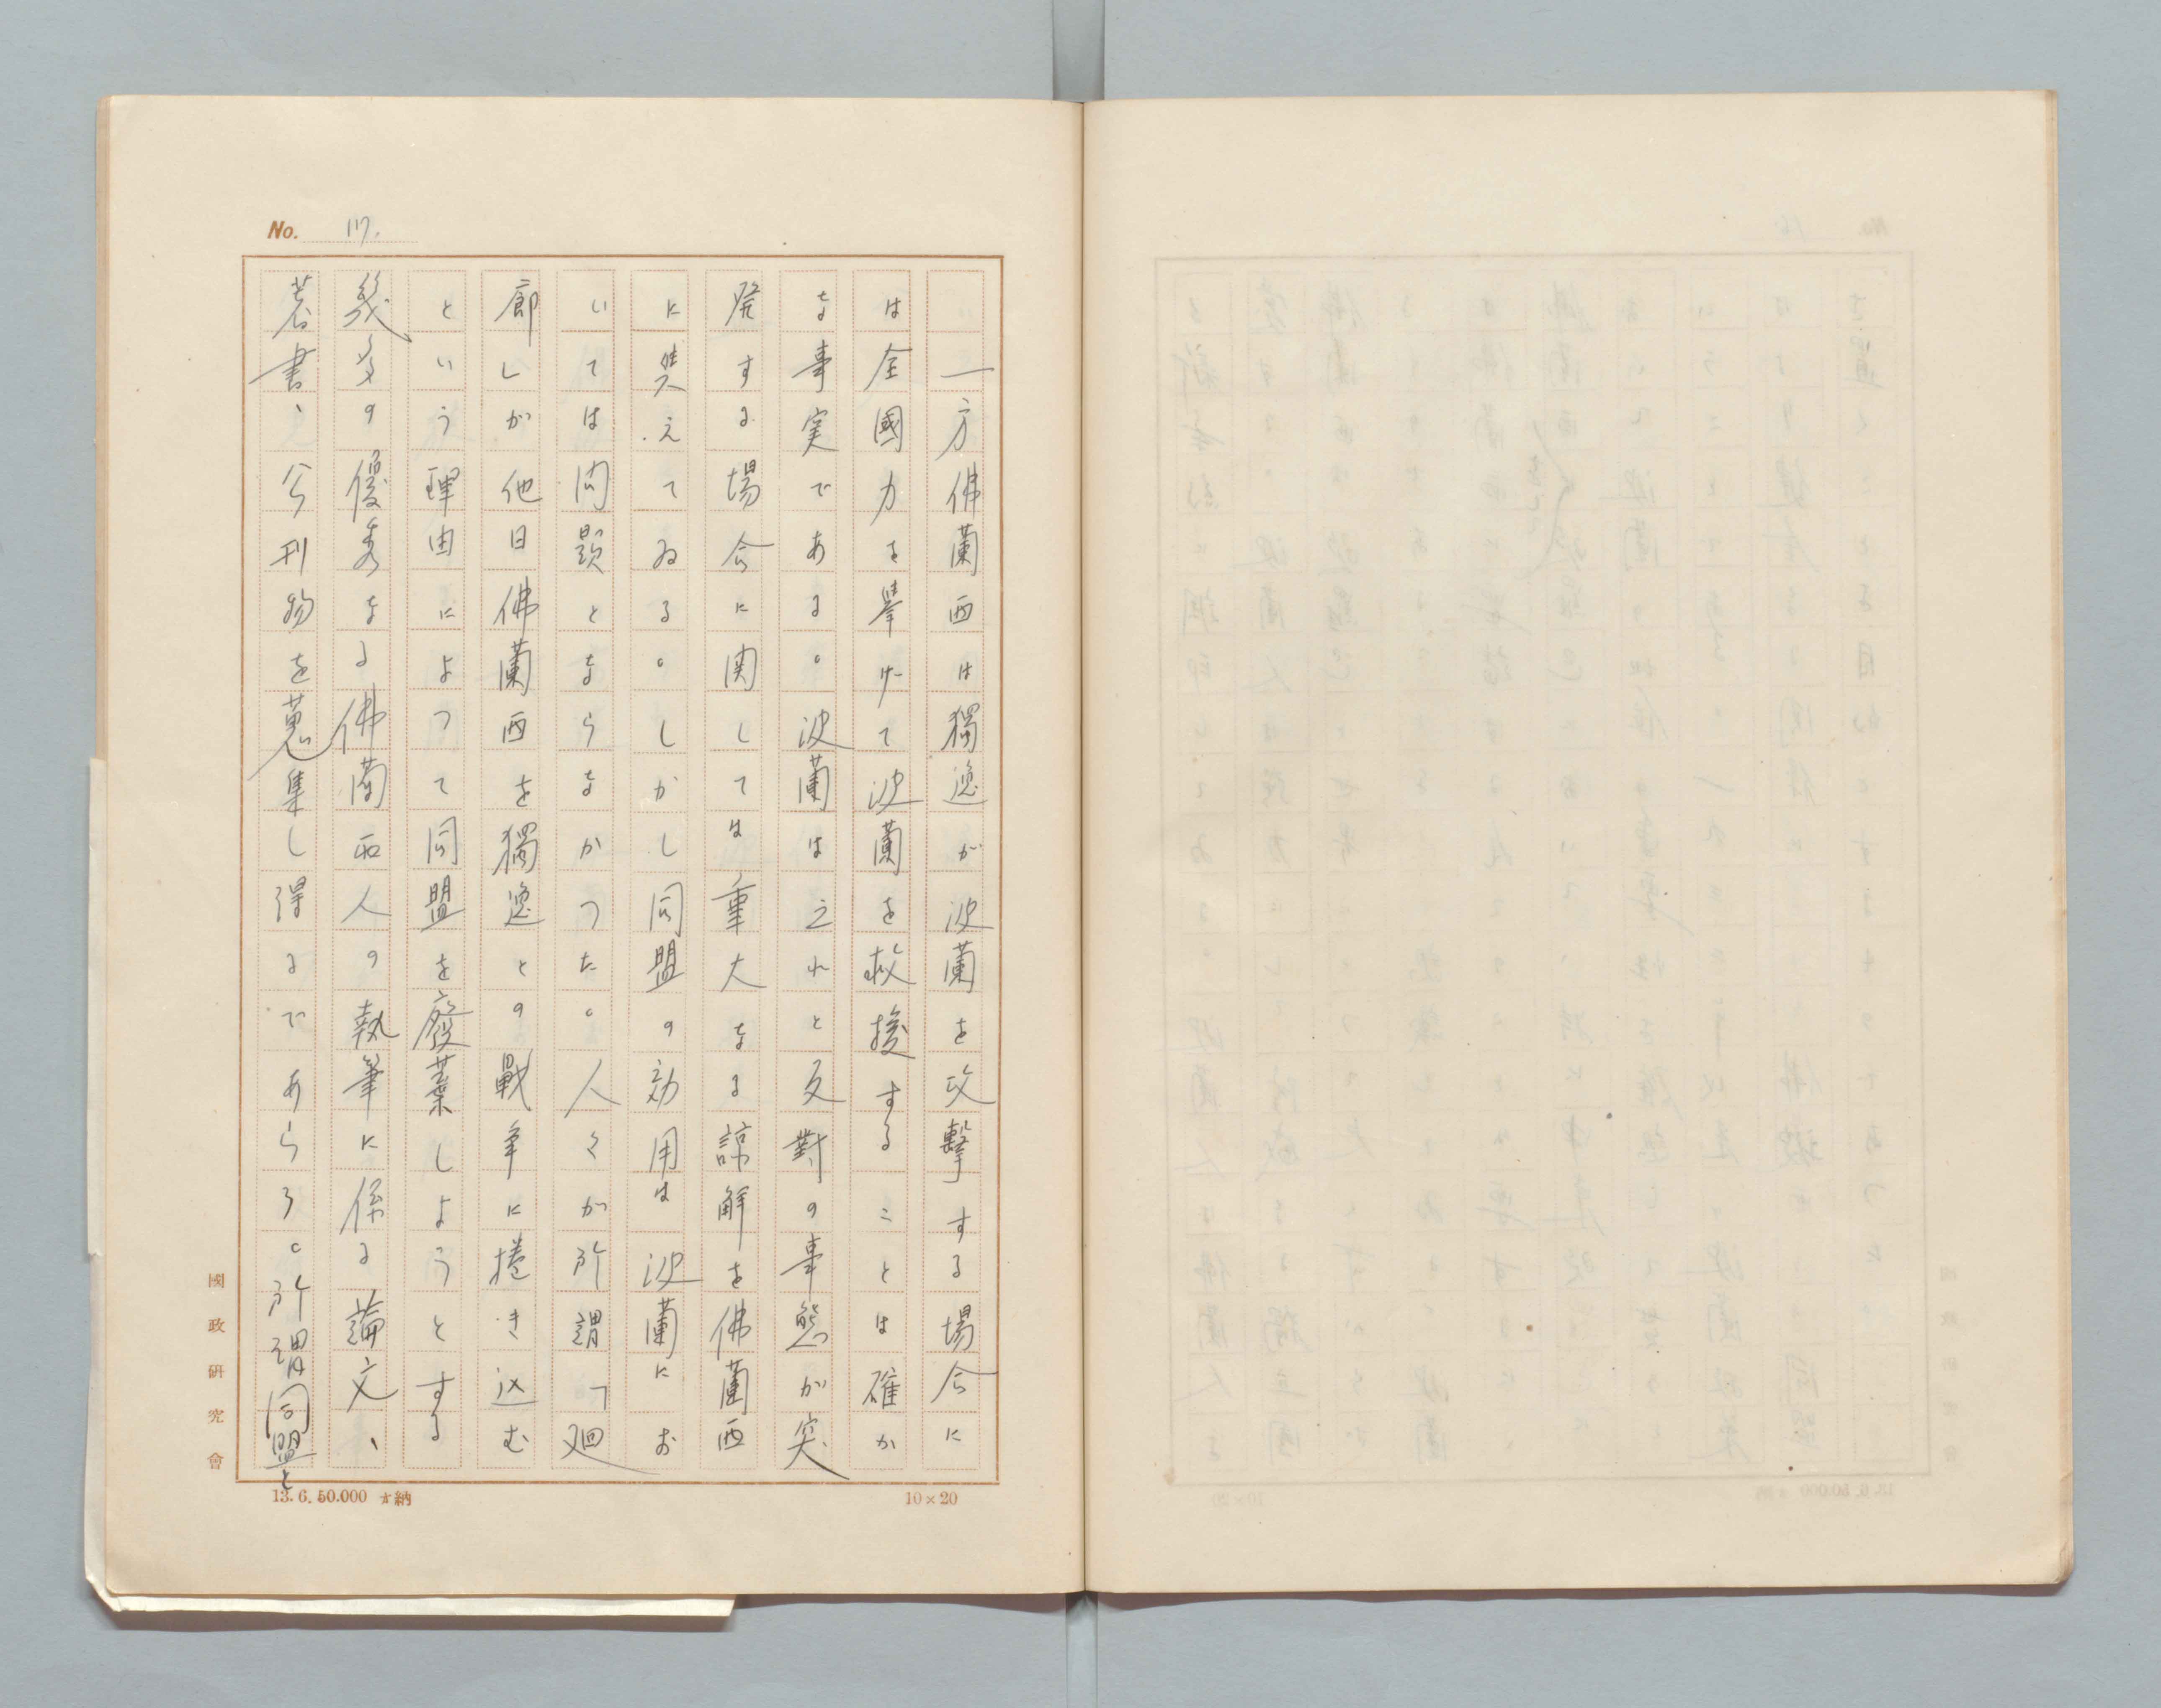 No. 17.
一方佛蘭西は獨逸が波蘭を攻擊する場合に
は全國力を挙げて波蘭を救援することは確か
な事実である。波蘭は之れと反對の事態が突
発する場合に関しては重大なる諒解を佛蘭西
に與えてゐる。しかし同盟の効用は波蘭にお
いては問題とならなかつた。人々が所謂「廻
廊しが他日佛蘭西を獨逸との戰争に捲き込む
という理由によつて同盟を廢棄しようとする
幾多の優秀なる佛蘭西人の執筆に係る論文、
著書、公刊物を蒐集し得るであらう。所謂同盟と
國政研究會
13.6.50.000 才納
10×20